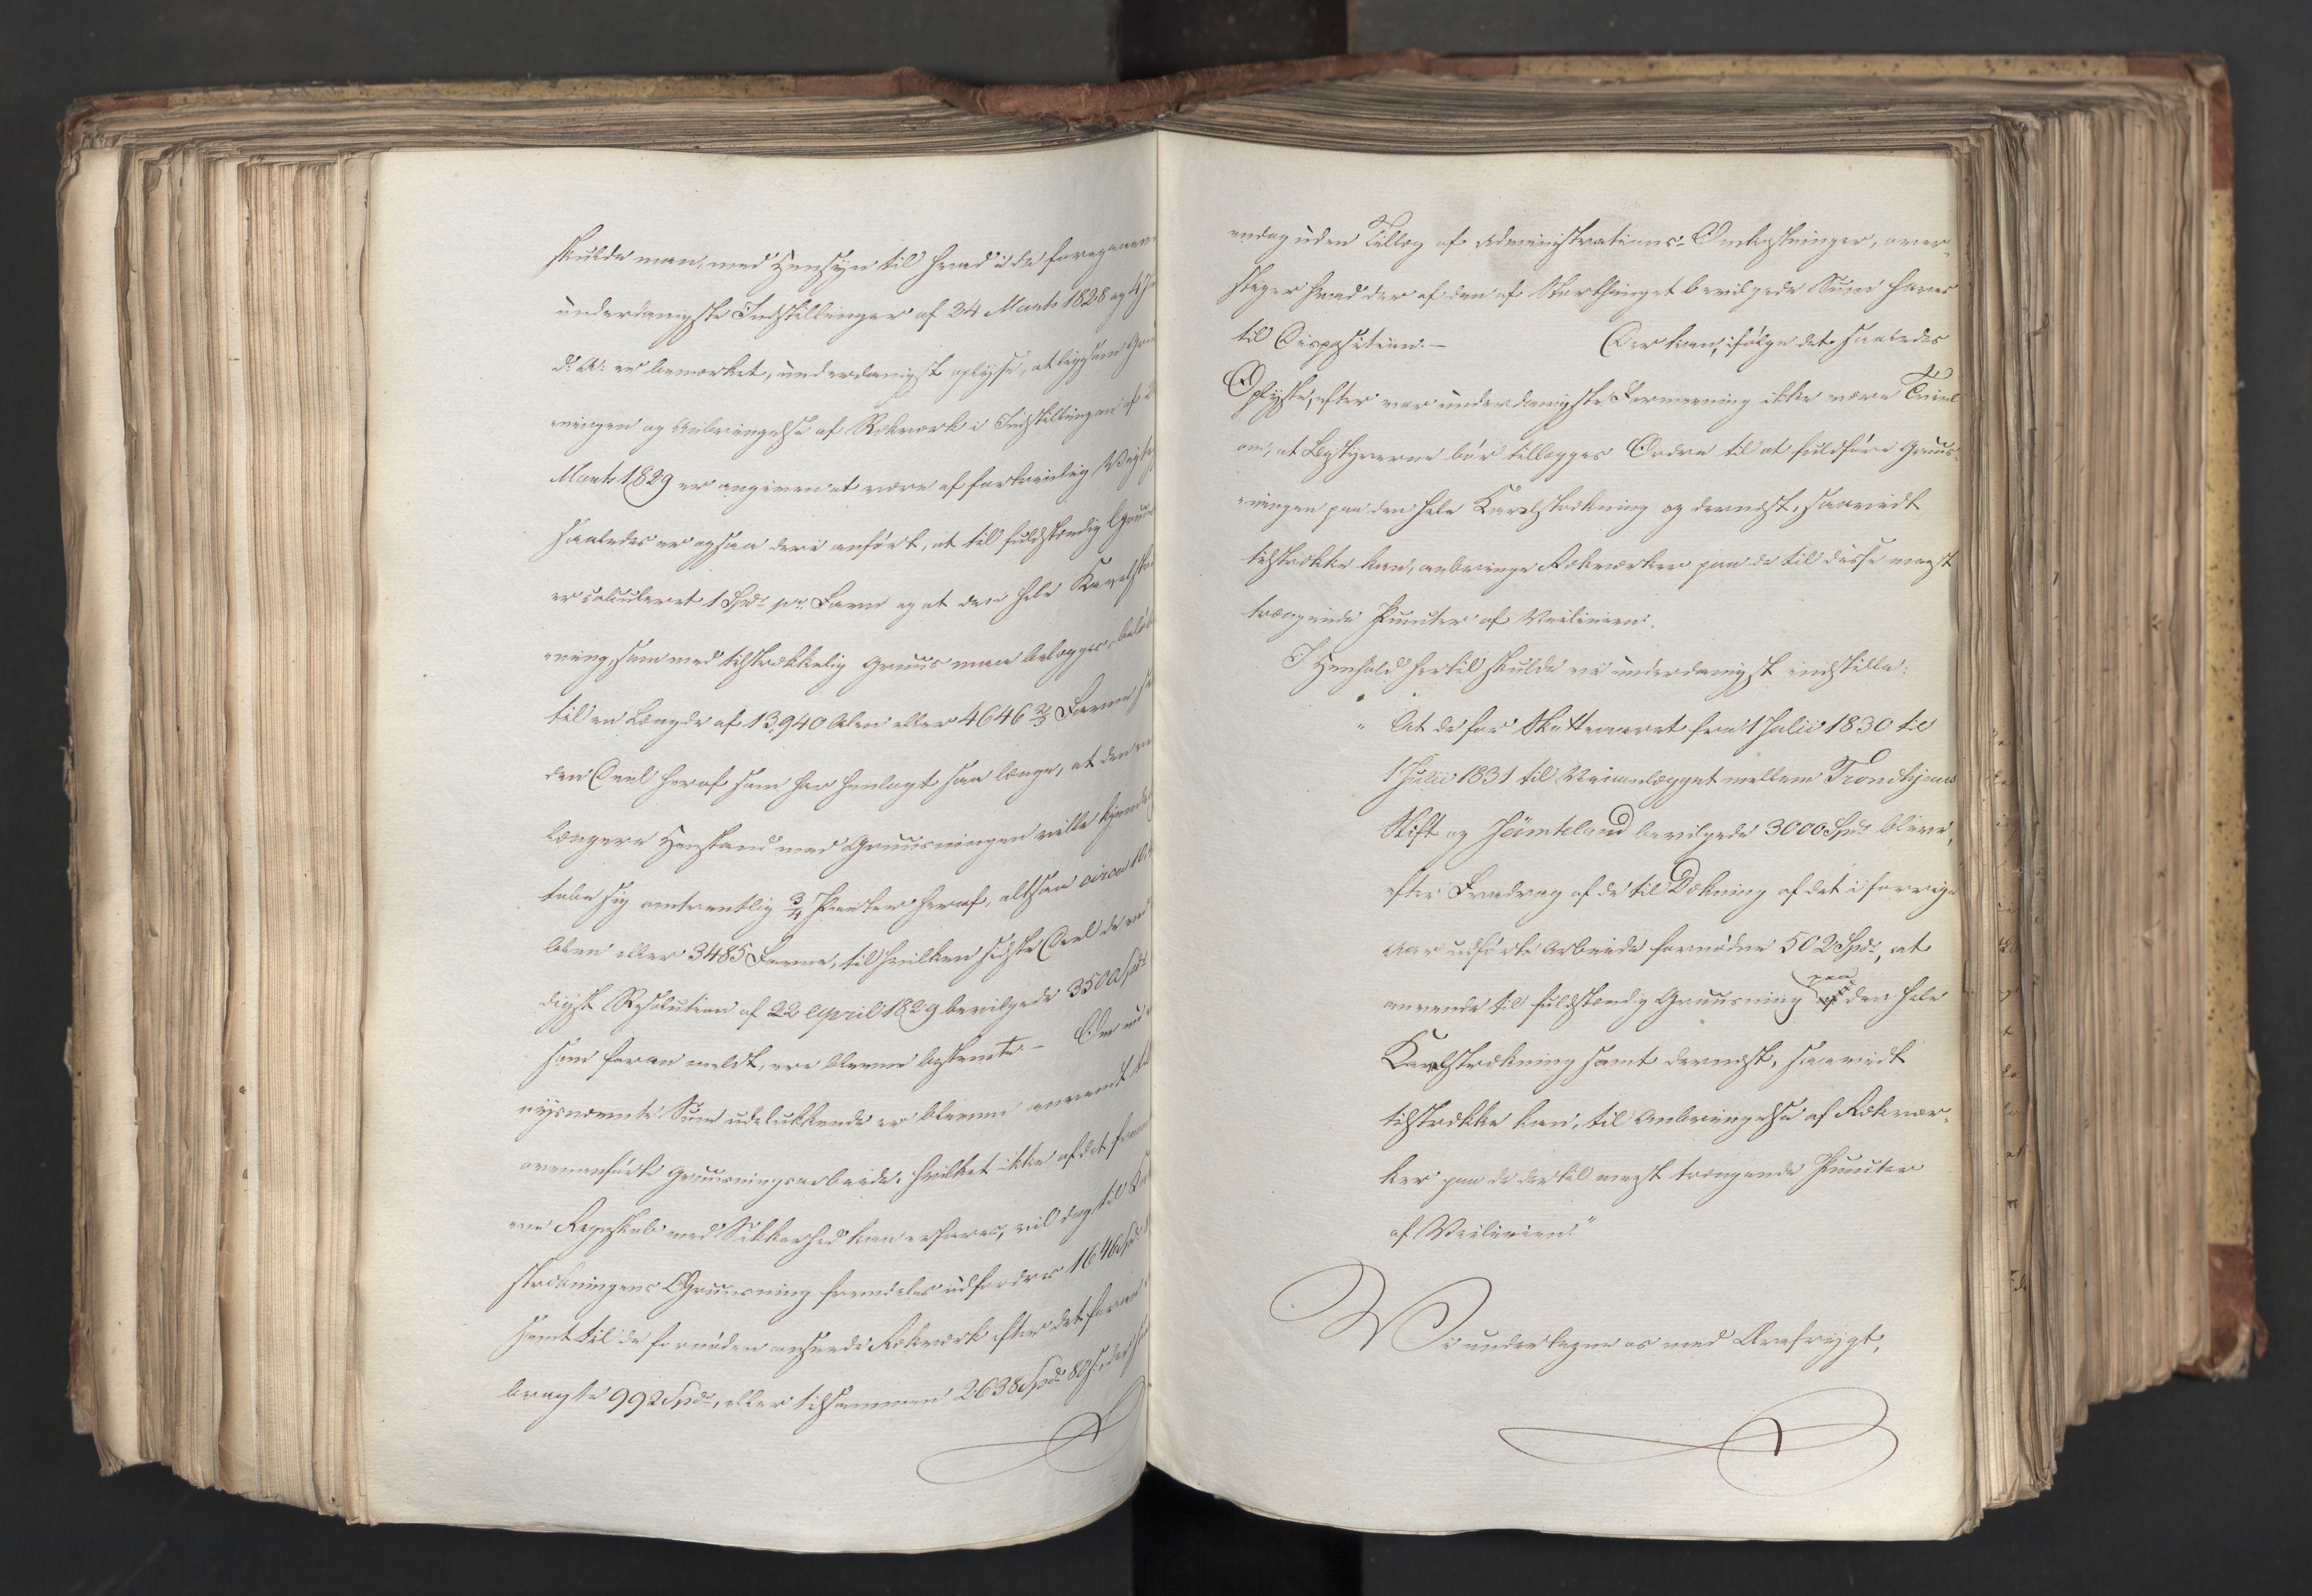 skulde man, med Hensyn til hvad i de foregaaen
underdanigste Indstillinger af 24 Marts 1828 og 4
d: A: er bemærket, underdanigst oplyse, at ligesom Gru
ningen og Anbringelse af Rækværk i Indstillingen af 2
Marts 1829 er angiven at være af fortrinlig Vigt
saaledes er ogsaa deri anført, at til fuldstændig Gruus
er calculeret 1 Spd: pr: Favn og at den hele Kavelstræ
ning, som med tilstrækkelig Gruus maa belægges, belø
til en Længde af 13,940 Alen eller 4646 2/3 Favne
den Deel heraf som har henlagt saa længe, at den
længere Henstand med Gruusningen vilde
tabe sig omtrentlig 3/4 Parter heraf, altsaa circa 10,4
Alen eller 3485 Favne, til hvilken sidste Deel de ved
digst Resolution af 22 April 1829 bevilgede 3500 Spd:
som foran meldt, ere blevne bestemte. – Om nu
nysnævnte Sum udelukkende er bleven anvendt til
ovenanførte Gruusningsarbeide, hvilket ikke af det
ne Regnskab med Sikkerhed kan erfares, vil dog til
strækningens Gruusning fremdeles udfordres 1646 Spd:
samt til de fornøden anseede Rækværk efter det foran
bragte 992 Spd:, eller tilsammen 2638 Spd: 80 s:, der
endog uden Tillæg af Administrations-Omkostninger, over-
stiger hvad der af den af Storthinget bevilgede Sum haves
til Disposition. – Der kan, ifølge det saaledes
Oplyste, efter vor underdanigste Formening ikke være Tvivl
om, at Bestyrerne bør tillægges Ordre til at fuldføre Gruus-
ningen paa den hele Kavelstrækning og dernæst, saavidt
tilstrække kan, anbringe Rækværker paa de til disse meest
trængende Puncter af Veilinien.
I Henhold hertil skulde vi underdanigst indstille:
" At de for Skatteaaret fra 1 Julii 1830 til
1 Julii 1831 til Veianlægget mellem Trondhjems
Stift og Jämteland bevilgede 3000 Spd: blive,
efter Fradrag af de til Dækning af det i forrige
Aar udførte Arbeide fornødne 502 Spd:, at
anvende til fuldstændig Gruusning paa den hele
Kavelstrækning samt dernæst, saavidt
tilstrække kan, til Anbringelse af Rækvær-
ker paa de dertil meest trængende Puncter
af Veilinien."
Vi undertegne os med Ærefrygt,